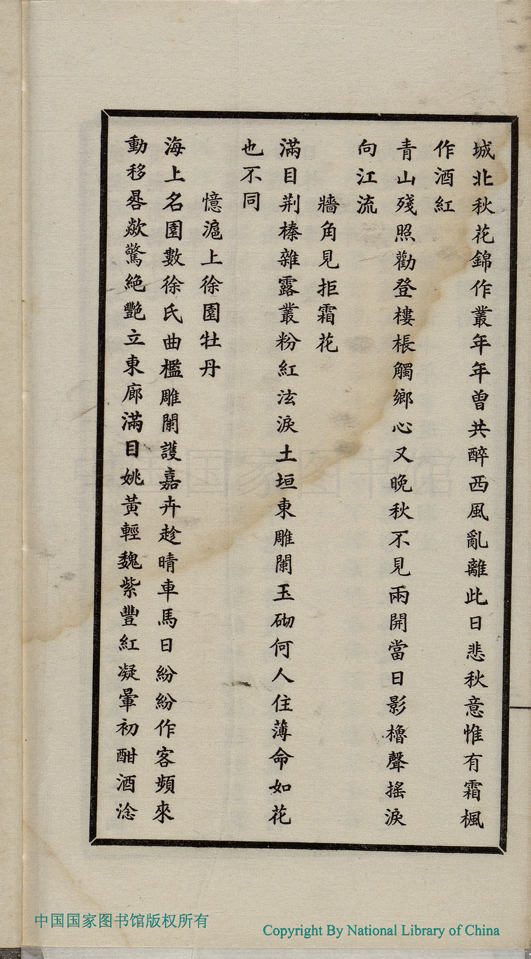 城北秋花錦作叢年年曾共醉西風亂離此日悲秋意惟有霜楓
作酒紅
青山殘照勸登樓棖觸鄉心又晚秋不見兩開當日影櫓聲搖淚
向江流
牆角見拒霜花
滿目荆榛雜露叢粉紅泫淚土垣東雕闌玉砌何人住薄命如花
也不同
憶滬上徐園牡丹
海上名園數徐氏曲檻雕闌護嘉卉趁晴車馬日紛紛作客頻來
動移晷歘驚絕艷立東廊滿目姚黃輕魏紫豐紅凝暈初酣酒淰
中国国家图书馆版权所有
Copyright By National Library of China
国家图书馆